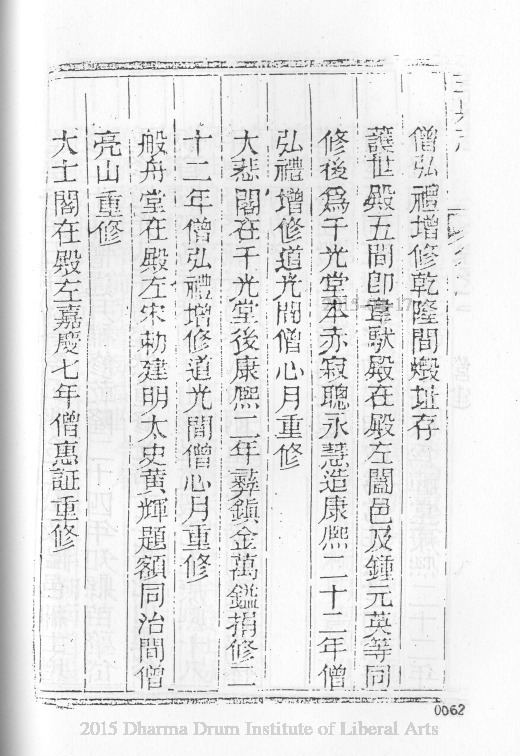 僧弘禮增修乾隆間燬址存
護世殿五間卽韋馱殿在殿左闔邑及鍾元英等同
修後爲千光堂本赤寂聰永慧造康熙二十二年僧
弘禮增修道光間僧心月重修
大悲閣在千光堂後康熙二年彞鎭金萬鑑捐修二
十二年僧弘禮增修道光間僧心月重修
般舟堂在殿左宋勅建明太史黄輝題額同治間僧
亮山重修
大士閣在殿左嘉慶七年僧惠証重修
0062
2015 Dharma Drum Institute of Liberal Arts